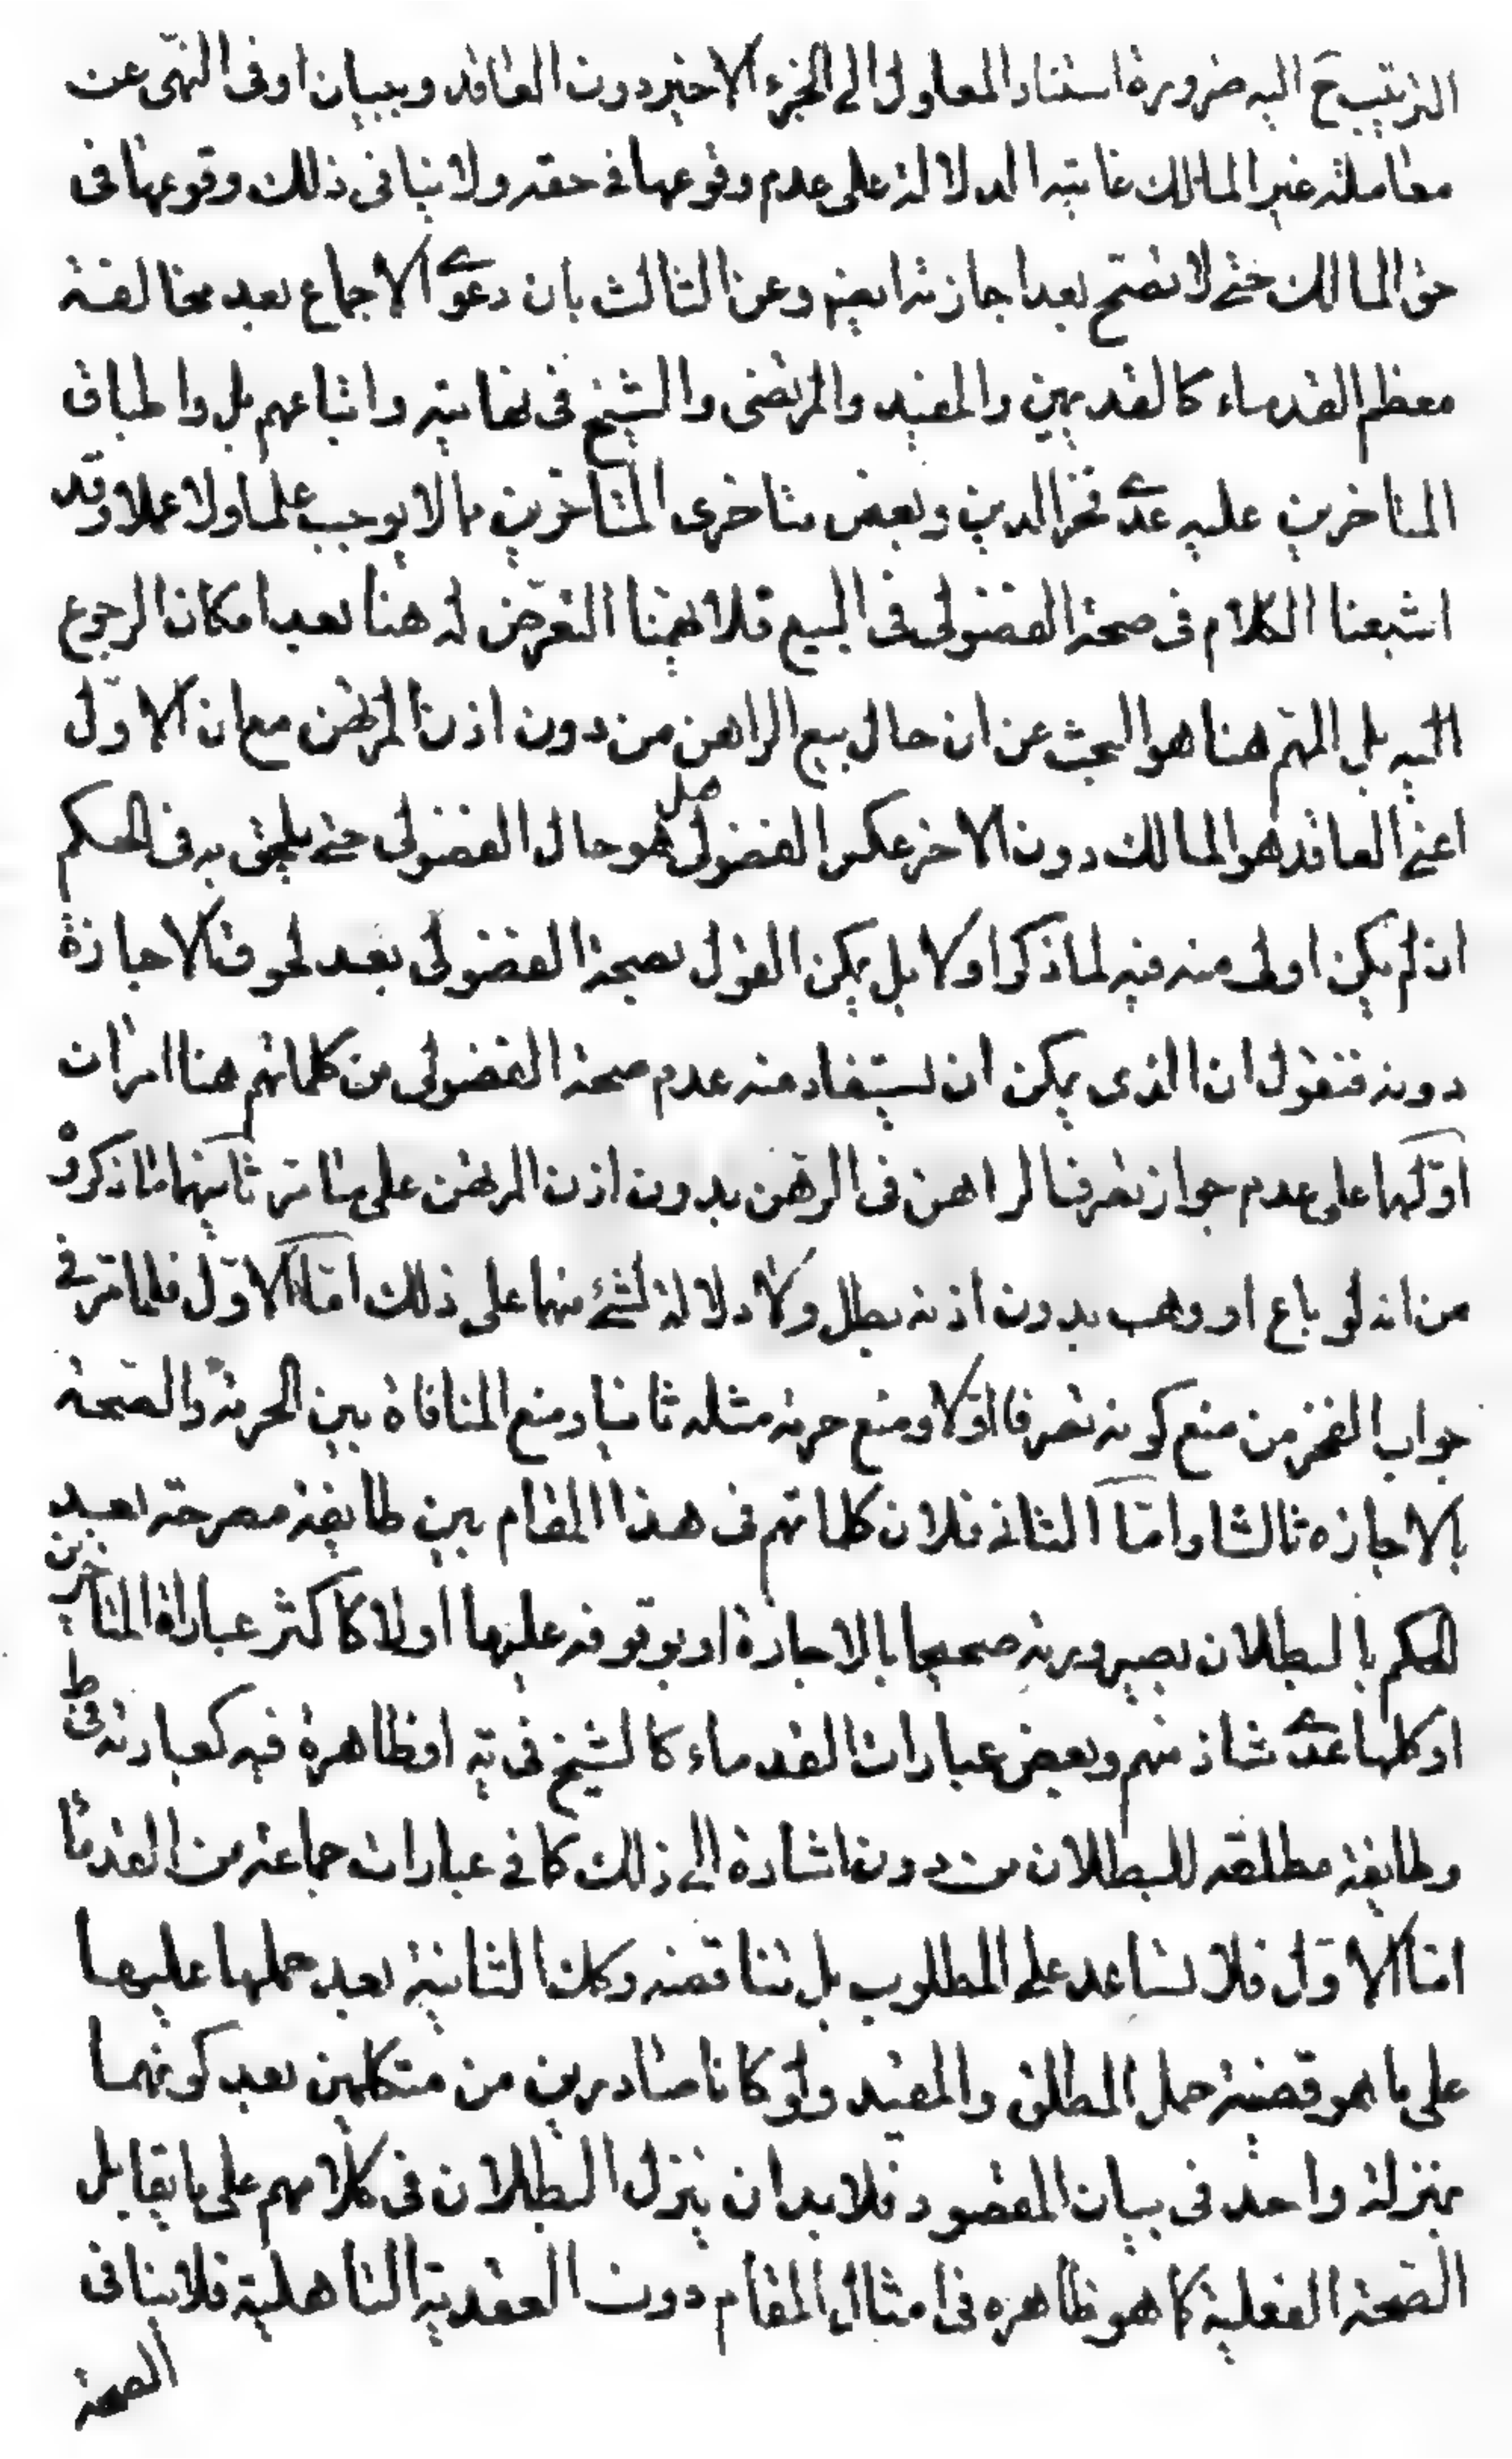 الترتيب ح اليه ضرورة استناد المعلول الى الجزء الاخير دون العاقد وببيان اوفى النهى عن
معاملة غير المالك غايته الدلالة على عدم وقوعها فى حقه ولا ينافى ذلك وقوعها فى
حق المالك حتى لا تصح بعد اجازته ايضا وعن الثالث بان دعوى الاجماع بعد مخالفة
معظم القدماء كالقديمين والمفيد والمرتضى والشيخ فى نهايته واتباعهم بل واطباق
المتاخرين عليه عدى فخر الدين وبعض متاخرى المتاخرين مما لا يوجب علما ولا عملا وقد
اشبعنا الكلام فى صحة الفضولى فى البيع فلا يهمنا التعرض له هنا بعد امكان الرجوع
اليه بل المهم هنا هو البحث عن ان حال بيع الراهن من دون اذن المرتهن مع ان الاول
اعنى العاقد هو المالك دون الاخر عكس الفضولى هل هو حال الفضولى حتى يلحق به فى الحكم
ان لم يكن اولى منه فيه لما ذكر او لا بل يمكن القول بصحة الفضولى بعد لحوق الاجازة
دونه فنقول ان الذى يمكن ان يستفاد منه عدم صحة الفضولى من كلماتهم هنا امران
اولهما على عدم جواز تصرف الراهن فى الرهن بدون اذن المرتهن على ما مر ثانيهما ما ذكروه
من انه لو باع او وهب بدون اذنه بطل ولا دلالة لشئ منهما على ذلك اما الاول فلما مر فى
جواب الفخر من منع كونه تصرفا اولا ومنع حرمة مثله ثانيا ومنع المنافاة بين الحرمة والصحة
بالاجازه ثالثا واما الثانى فلان كلماتهم فى هذا المقام بين طايفة مصرحة بعد
الحكم بالبطلان بصيرورته صحيحا بالاجازة او بتوقفه عليها اولا كاكثر عباراة المتاخرين
او كلها عدى شاذ منهم وبعض عبارات القدماء كالشيخ فى ية او ظاهرة فيه كعبارته فى ط
وطايفة مطلقه للبطلان من دون اشارة الى ذلك كما فى عبارات جماعة من القدماء
اما الاول فلا تساعد على المطلوب بل تناقضه وكذا الثانية بعد حملها عليها
على ما هو قضية حمل المطلق والمقيد ولو كانا صادرين من متكلمين بعد كونهما
بمنزلة واحد فى بيان المقصود فلا بد ان ينزل البطلان فى كلامهم على ما يقابل
الصحة الفعلية كما هو ظاهره فى امثال المقام دون العقدية التاهلية فلا ينافى
الصحة